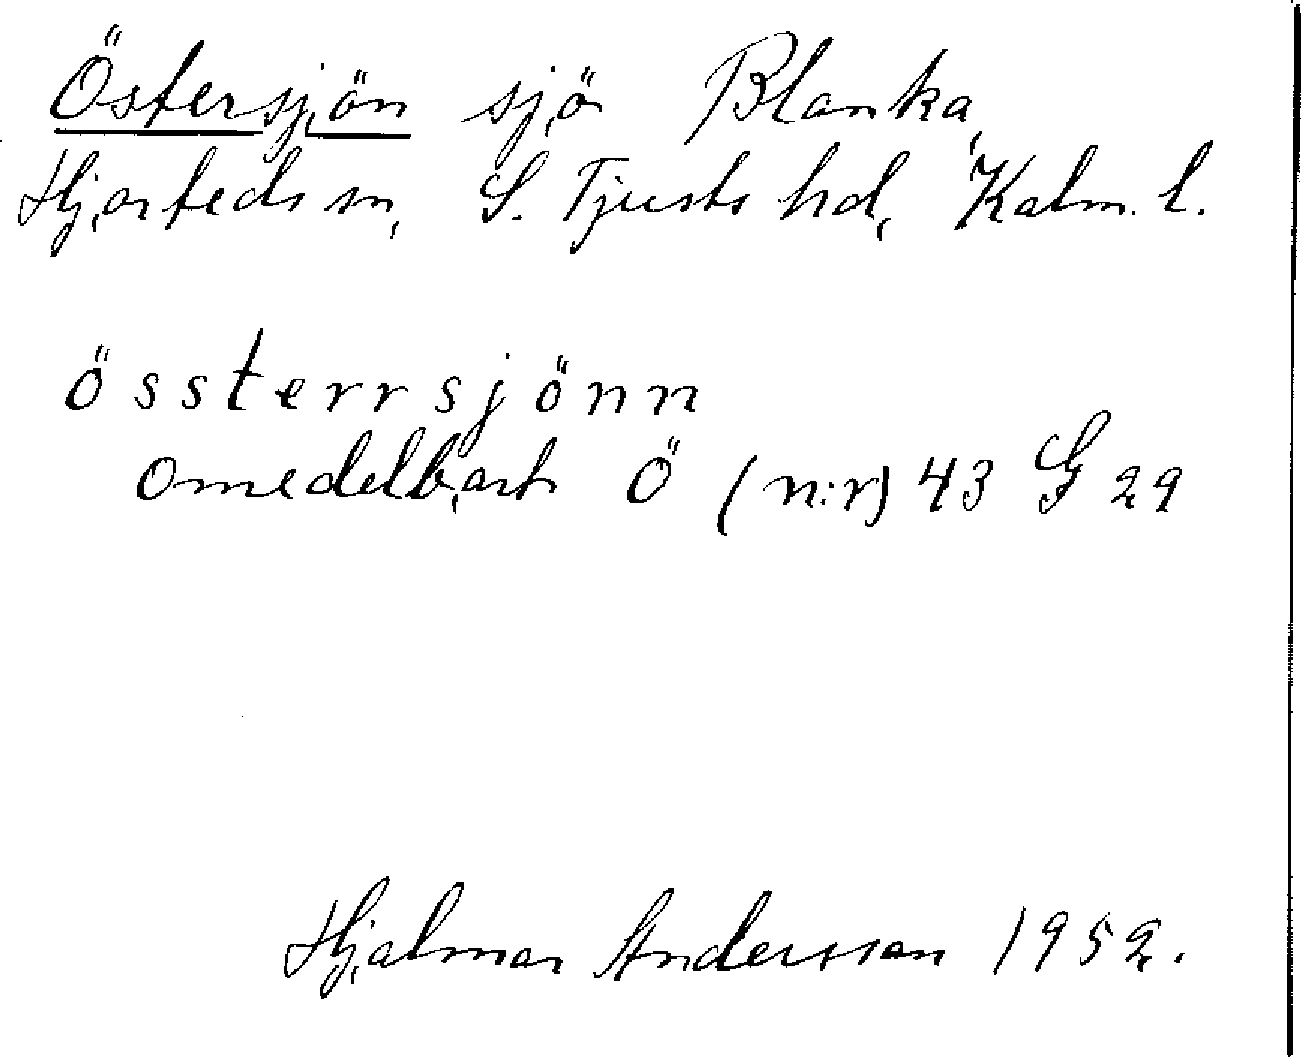 Östersjön sjö Blanka,
Hjorteds sn, S. Tjusts hd, Kalm. l.
össterrsjönn
omedelbart Ö (n:r) 43 G 29
Hjalmar Andersson 1952.